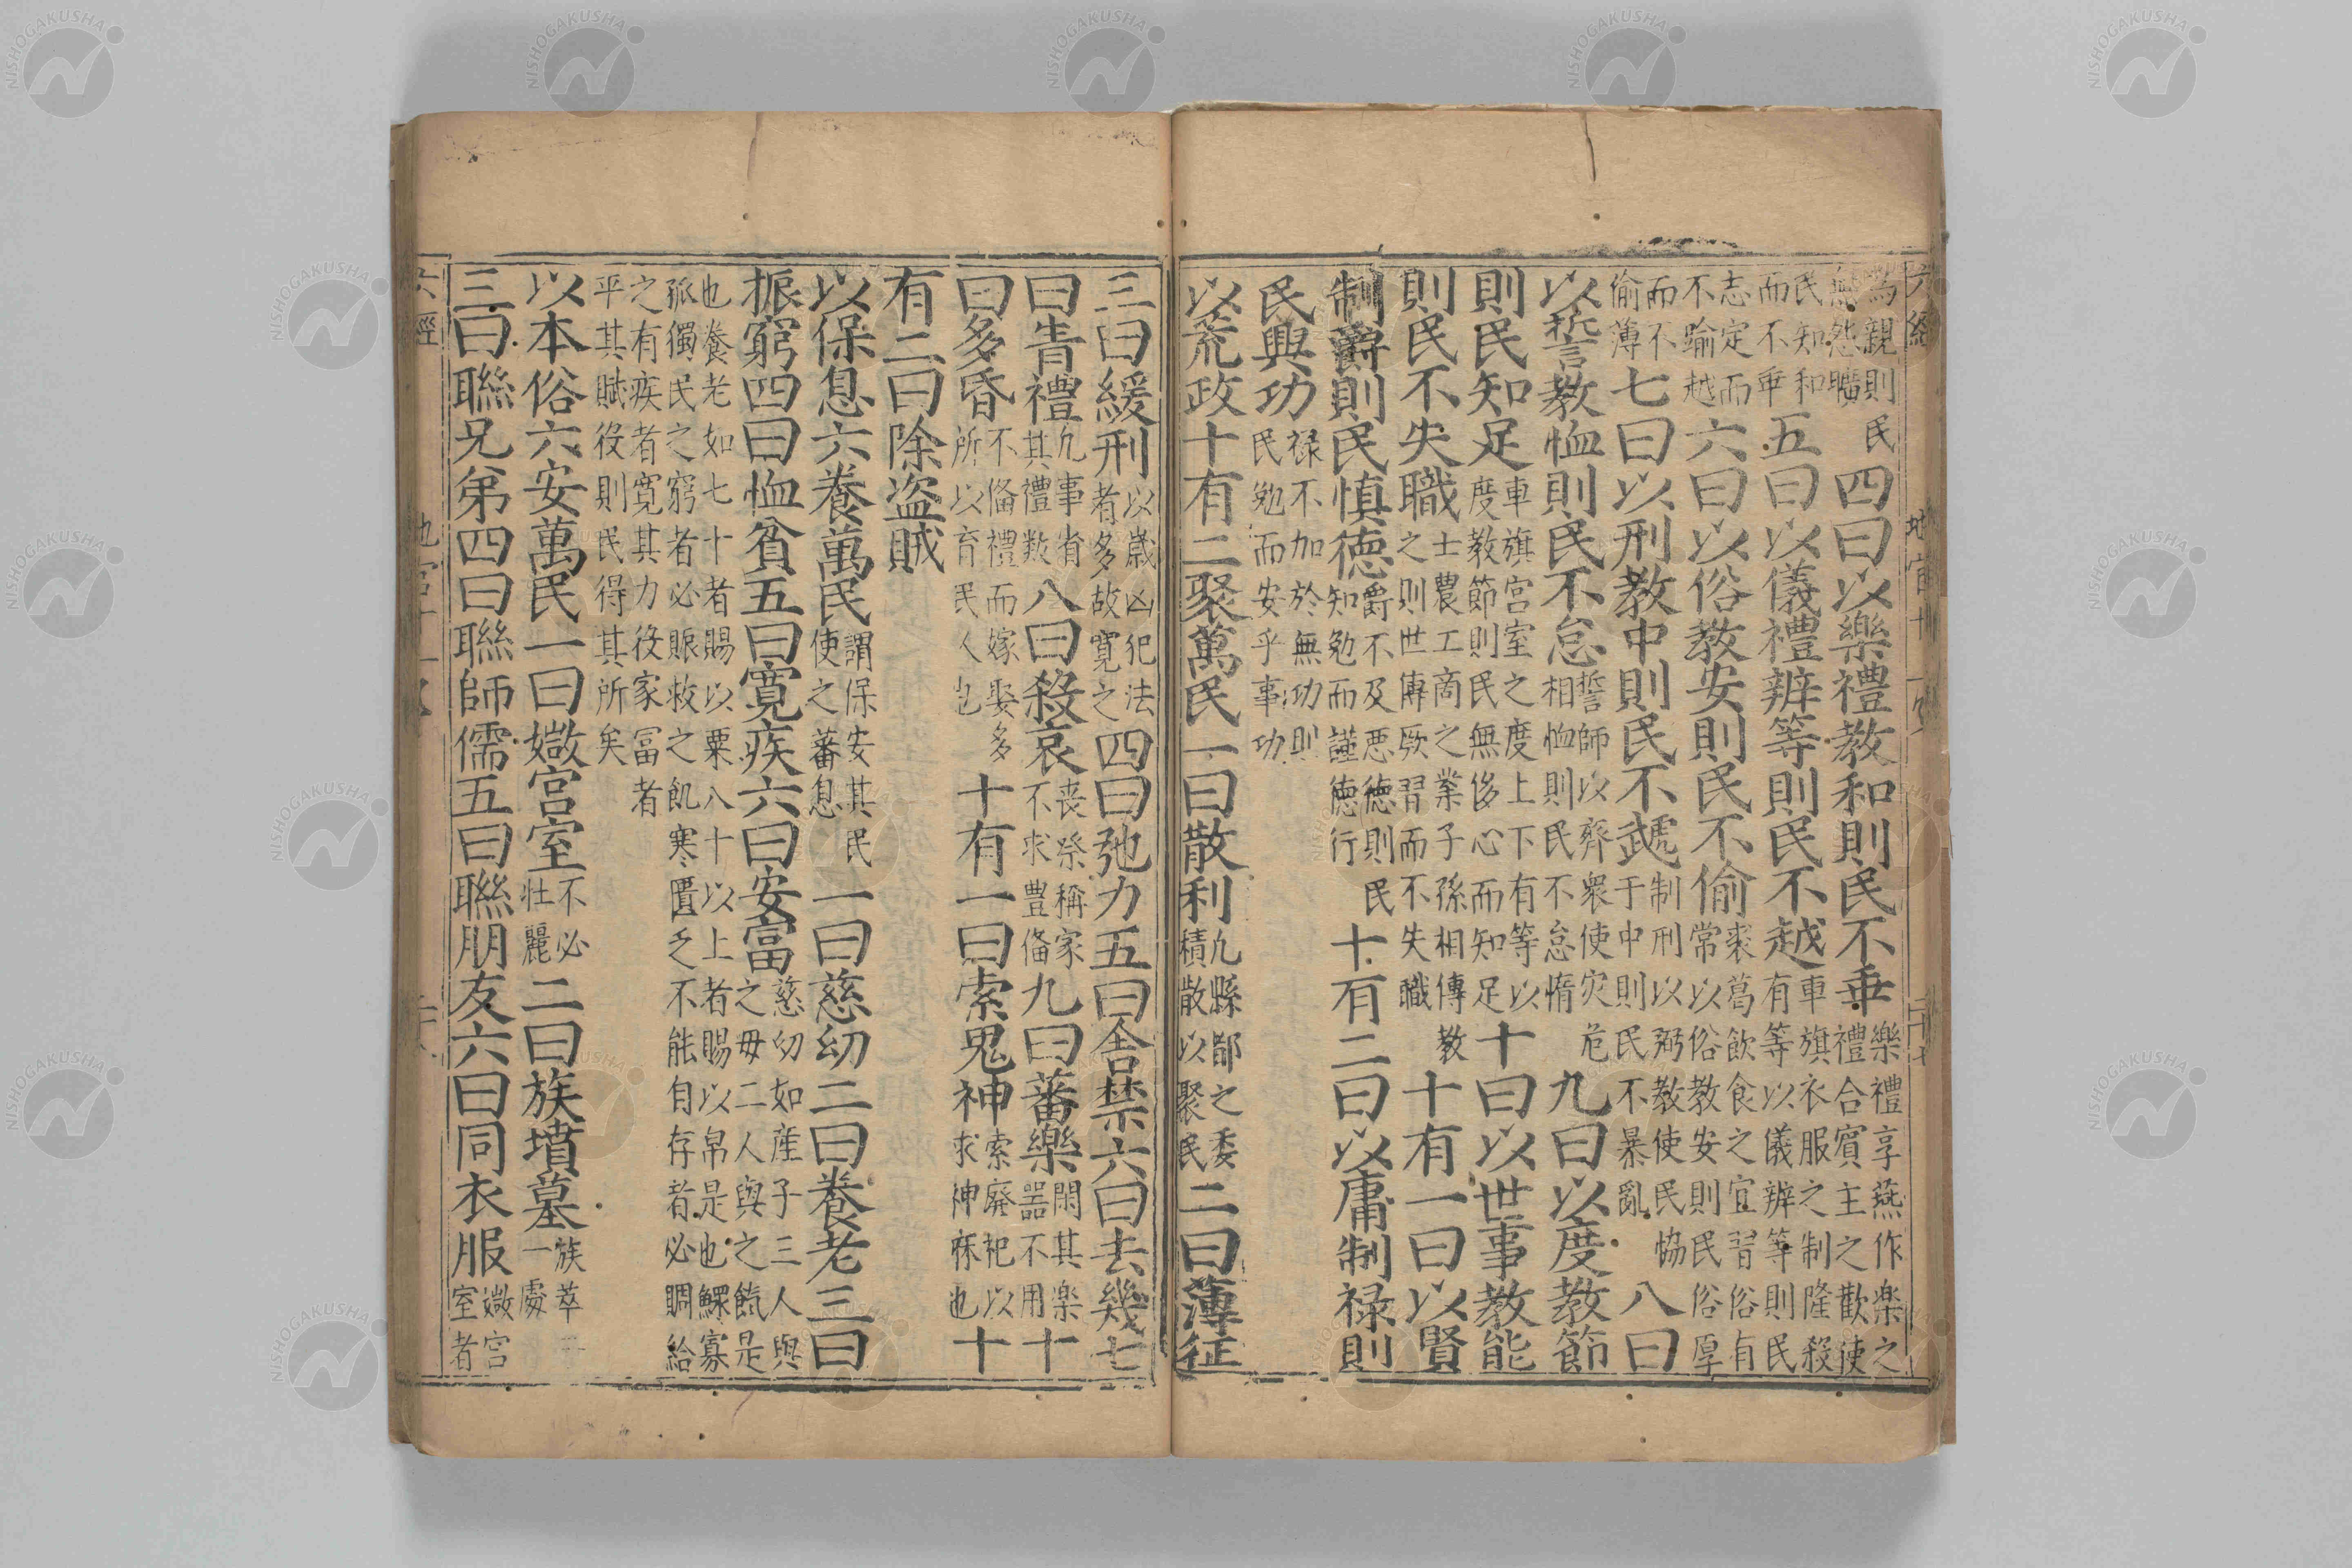 六經
為親則民無怨曠四曰以樂禮教和則民不乖樂禮享燕作樂之禮合賓主之歡使
民知和而不乖五曰以儀禮辨等則民不越車旗衣服之制隆殺有等以儀辨等則民
志定而不踰越六曰以俗教安則民不偷裘葛飲食之宜習俗有常以俗教教安則民俗厚
而不偷薄七曰以刑教中則民不虣制刑以弼教使民協于中則民不暴亂八曰
以誓教恤則民不怠誓師以齊衆使灾危相恤則民不怠惰九曰以度教節
則民知足車旗宮室之度上下有等以度教節則民無侈心而知足十曰以世事教能
則民不失職士農工商之業子孫相傳教之則世傳厥習而不失職十有一曰以賢
制爵則民慎徳爵不及悪徳則民知勉而謹徳行十有二曰以庸制禄則
民興功禄不加於無功則民勉而安乎事功
以荒政十有二聚萬民一曰散利凡縣鄙之委積散以聚民二曰薄征
三曰緩刑以歲凶犯法者多故寛之四曰弛力五曰舎禁六曰去幾七
曰眚禮凡事省其禮數八曰殺哀丧祭稱家不求豊俻九曰蕃樂閑其樂器不用十
曰多昏不俻禮而嫁娶多所以育民人也十有一曰索鬼神索廢祀以求神庥也十
有二曰除盗賊
以保息六養萬民謂保安其民使之蕃息一曰慈幼二曰養老三曰
振窮四曰恤貧五曰寛疾六曰安富慈幼如産子三人與之母二人與之餼是
也養老如七十者賜以粟八十以上者賜以帛是也鰥寡孤獨民之窮者必賑救之飢寒匱乏不能自存者必賙給
之有疾者寛其力役家冨者平其賦役則民得其所矣
以本俗六安萬民一曰媺宮室不必壮麗二曰族墳墓族萃一處
三曰聯兄弟四曰聯師儒五曰聯朋友六曰同衣服媺宮室者